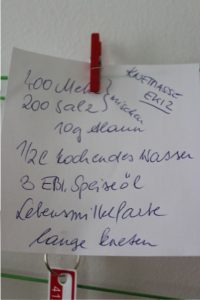 KNETMASSE
EKIZ
400 Mehl }
200 Salz } mischen
10g Alaun
1/2l kochendes Wasser
3 EßL. Speiseöl
Lebensmittelfarbe
lange kneten
41